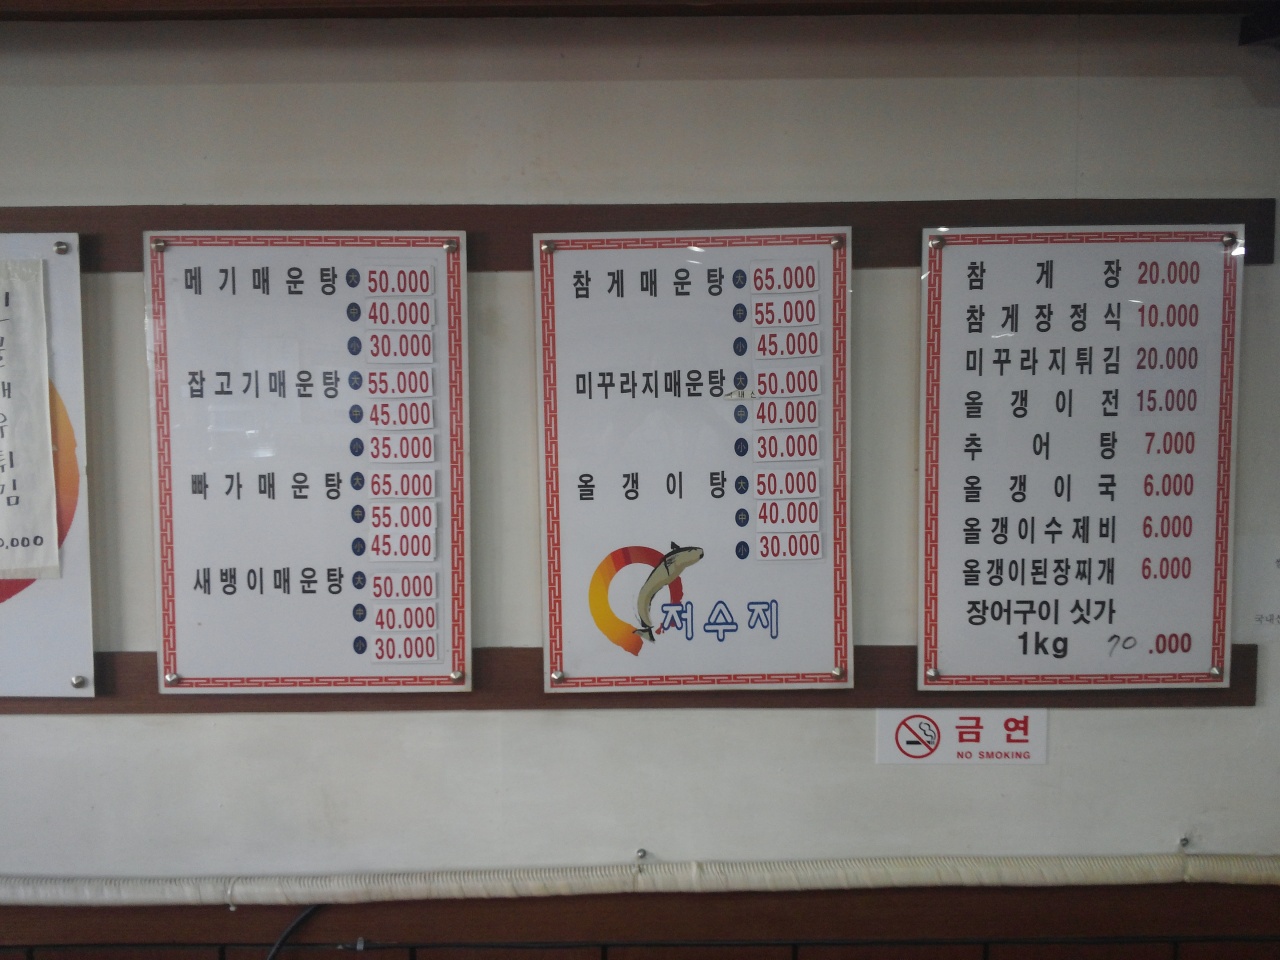 0,000
메기매운탕 大 50.000
中 40.000
小 30.000
잡고기매운탕 大 55.000
中 45.000
小 35.000
빠가매운탕 大 65.000
中 55.000
小 45.000
새뱅이매운탕 大 50.000
中 40.000
小 30.000
참게매운탕 大 65.000
中 55.000
小 45.000
미꾸라지매운탕 大 50.000
中 40.000
小 30.000
올갱이탕 大 50.000
中 40.000
小 30.000
저수지
참게장 20.000
참게장정식 10.000
미꾸라지튀김 20.000
올갱이전 15.000
추어탕 7.000
올갱이국 6.000
올갱이수제비 6.000
올갱이된장찌개 6.000
장어구이 싯가
1kg 70.000
금연
NO SMOKING